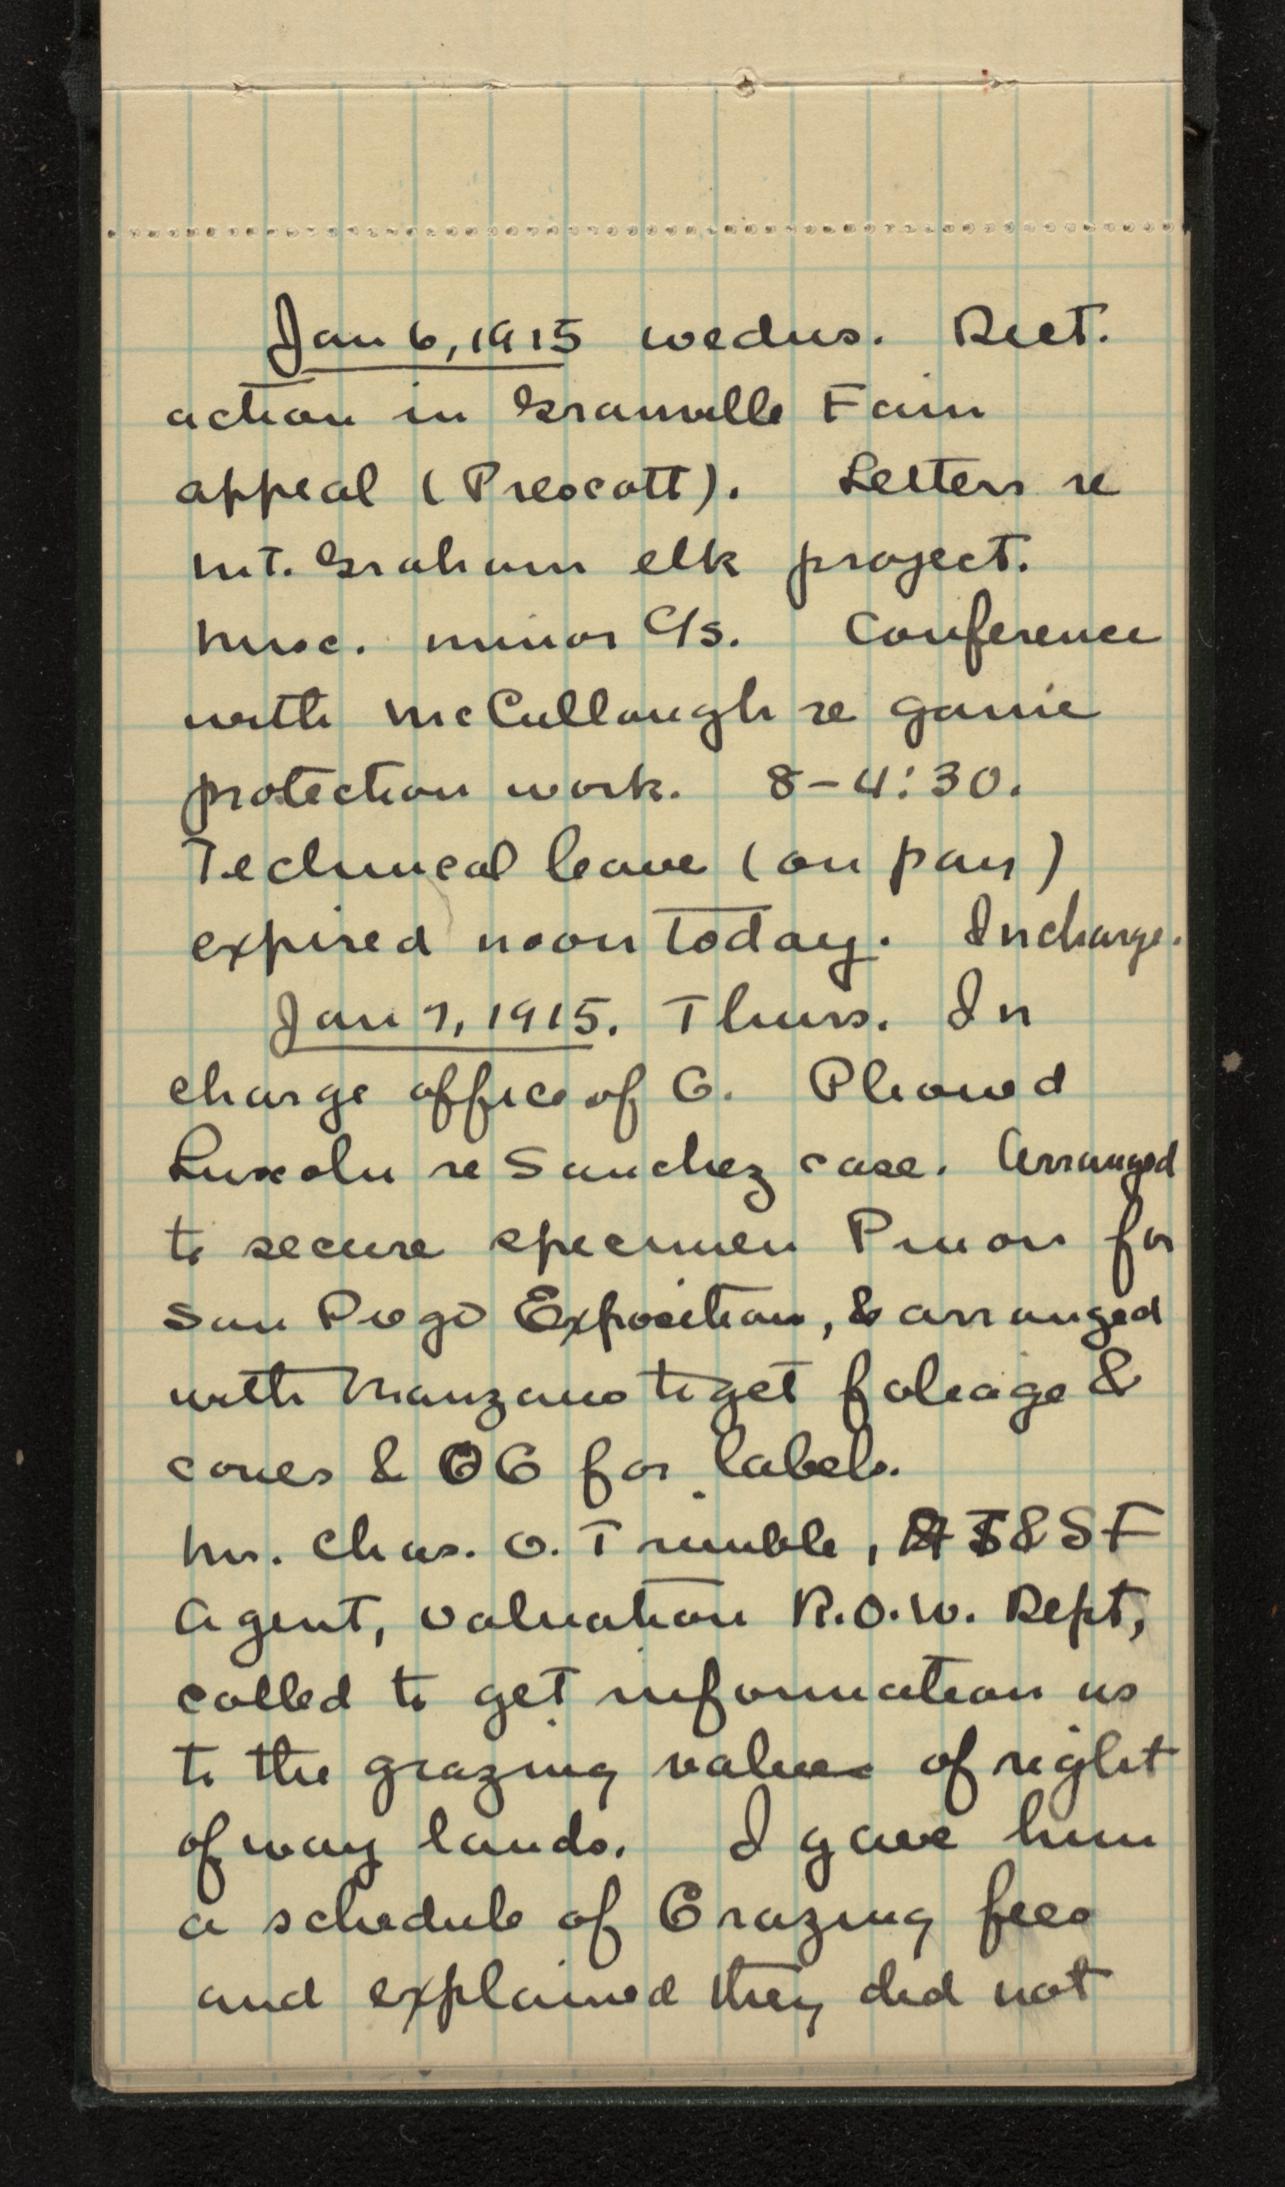 Jan 6, 1915 Wedns. Dict.
action in Granville Fain
appeal (Prescott). Letters re
Mt. Graham elk project.
Misc. minor C/s. Conference
with McCullough re game
protection work. 8-4:30.
Technical leave (on pay)
expired noon today. In charge.
Jan 7, 1915. Thurs. In
charge office of G. Phoned
Lincoln re Sanchez case. Arranged
to secure specimen Pinon for
San Diego Exposition, & arranged
with Manzano to get foliage &
cones & OG for labels.
Mr. Chas. O. Trumble, AT&SF
Agent, Valuation R.O.W. Dept,
called to get information as
to the grazing value of right
of way lands. I gave him
a schedule of Grazing fees
and explained they did not